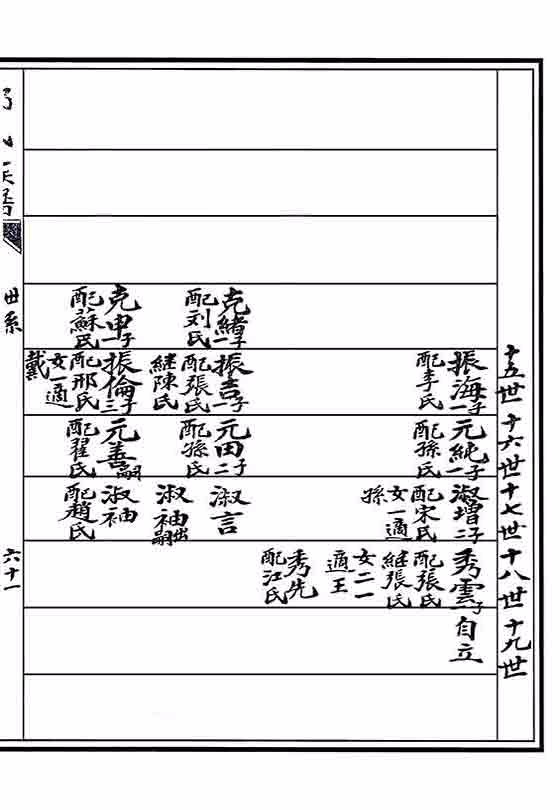 十五世
十六世
十七世
十八世
十九世
克緒一子
配刘氏
克申一子
配蘇氏
振海一子
配李氏
振吉一子
配張氏
继陳氏
振倫三子
配邢氏
女一適
戴
元純一子
配孫氏
元田二子
配孫氏
元善嗣
配翟氏
淑增二子
配宋氏
女一適
孫
淑言
淑袖出嗣
淑袖
配趙氏
秀雲一子
配張氏
继張氏
女二一
適王
秀先
配江氏
自立
世系
六十一